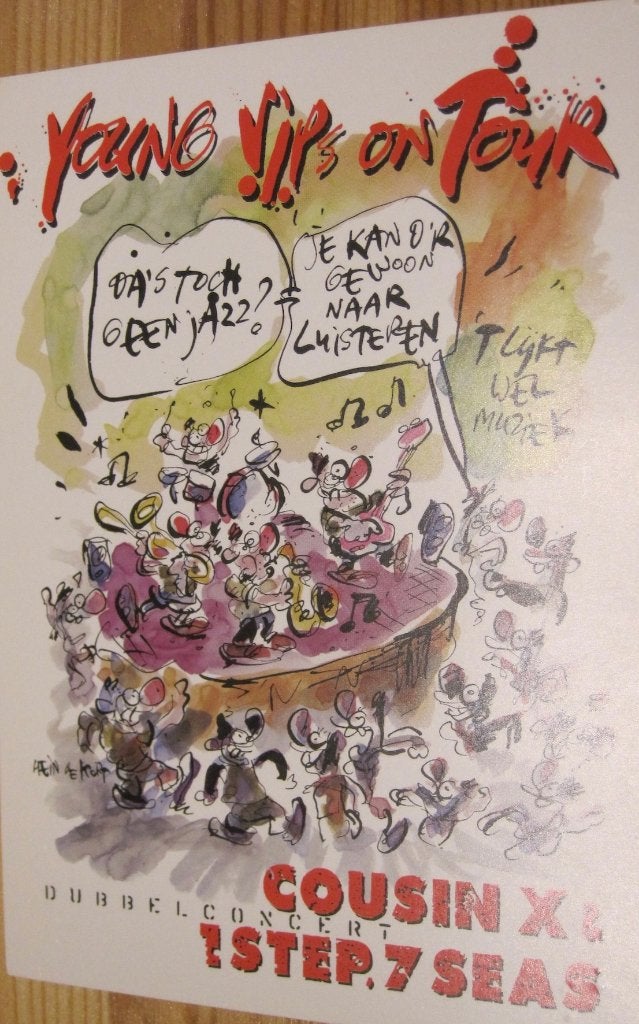 YOUNG VIPs ON TOUR
DA'S TOCH
GEEN JAZZ?
JE KAN D'R
GEWOON
NAAR
LUISTEREN
'T LIJKT
WEL
MUZIEK
COUSIN X &
DUBBELCONCERT
1 STEP, 7 SEAS